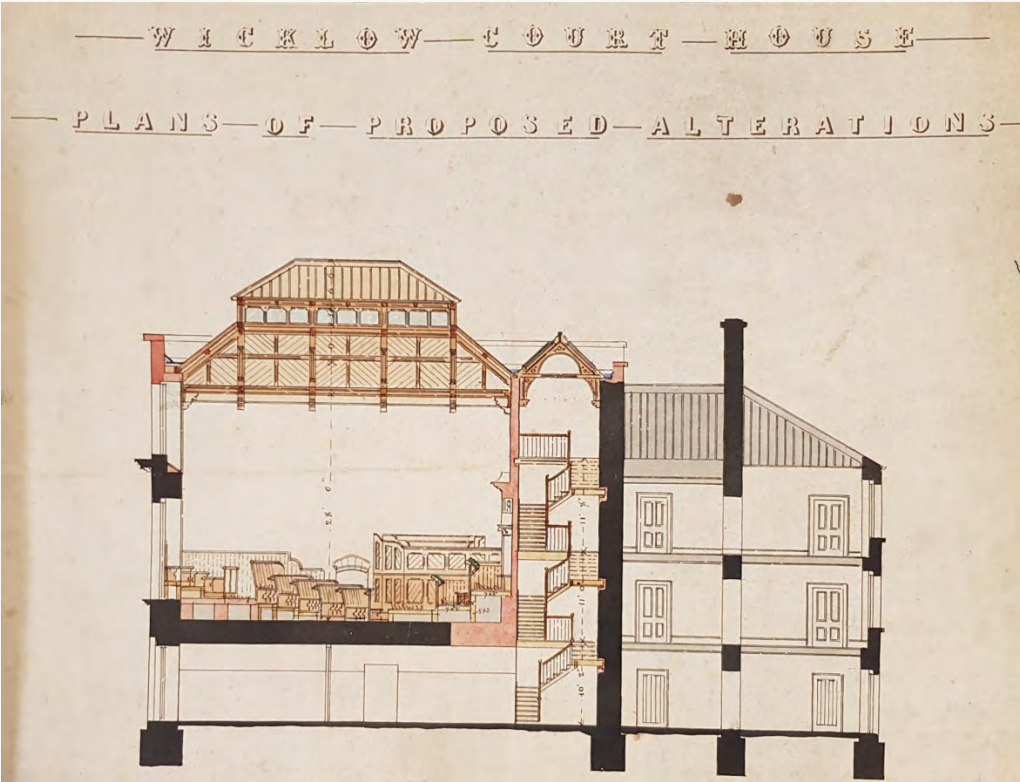 WICKLOW COURT HOUSE
PLANS OF PROPOSED ALTERATIONS
28' 0"
11' 9"
10' 2"